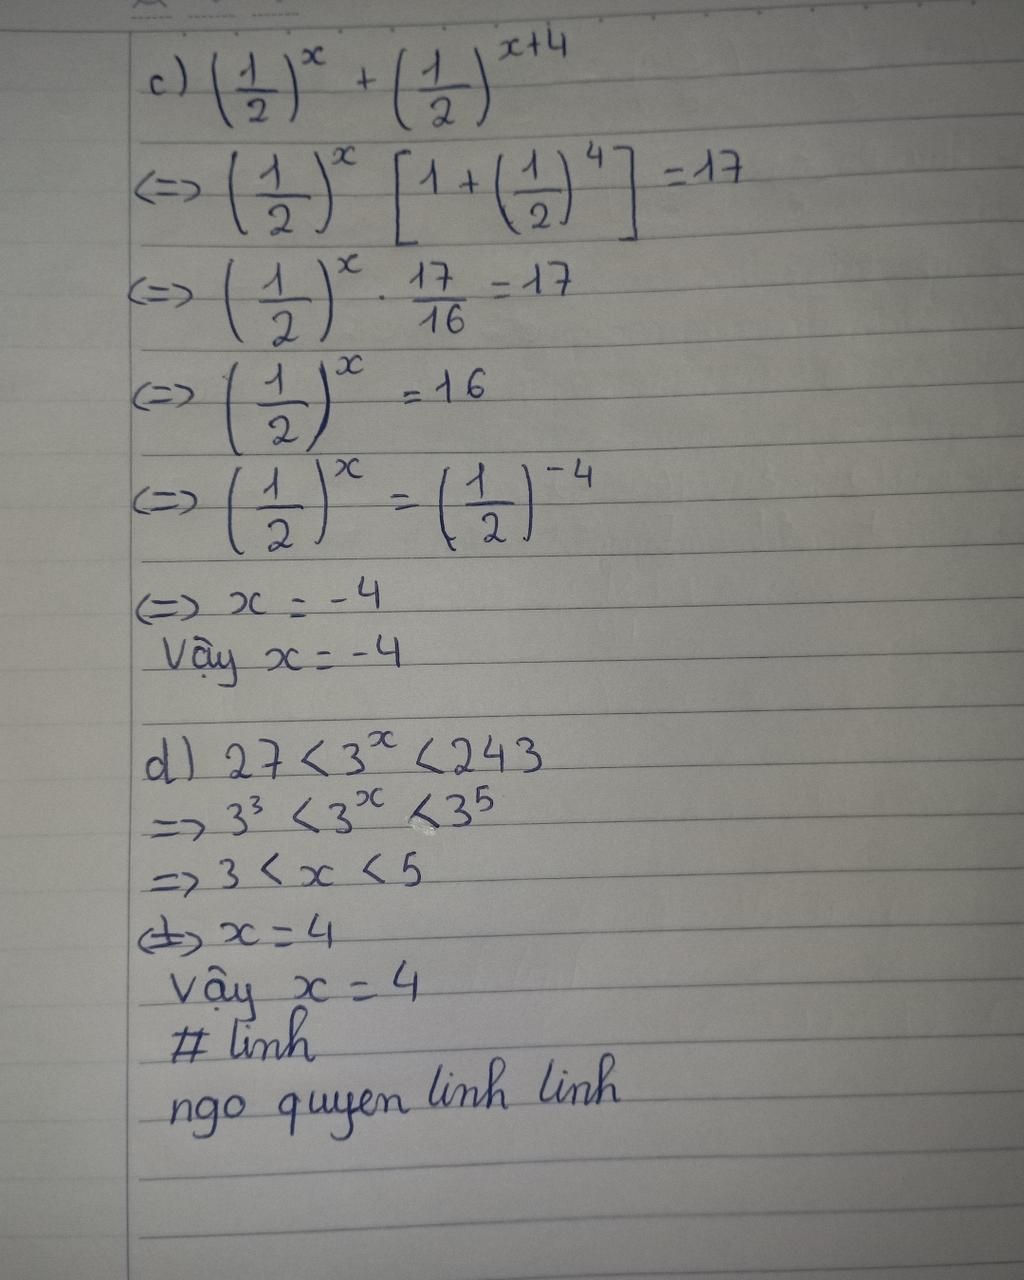 c) (1/2)^x + (1/2)^(x+4)
<=> (1/2)^x [1 + (1/2)^4] = 17
<=> (1/2)^x . 17/16 = 17
<=> (1/2)^x = 16
<=> (1/2)^x = (1/2)^-4
<=> x = -4
Vậy x = -4
d) 27 < 3^x < 243
=> 3^3 < 3^x < 3^5
=> 3 < x < 5
<=> x = 4
Vậy x = 4
# linh
ngo quyen linh linh